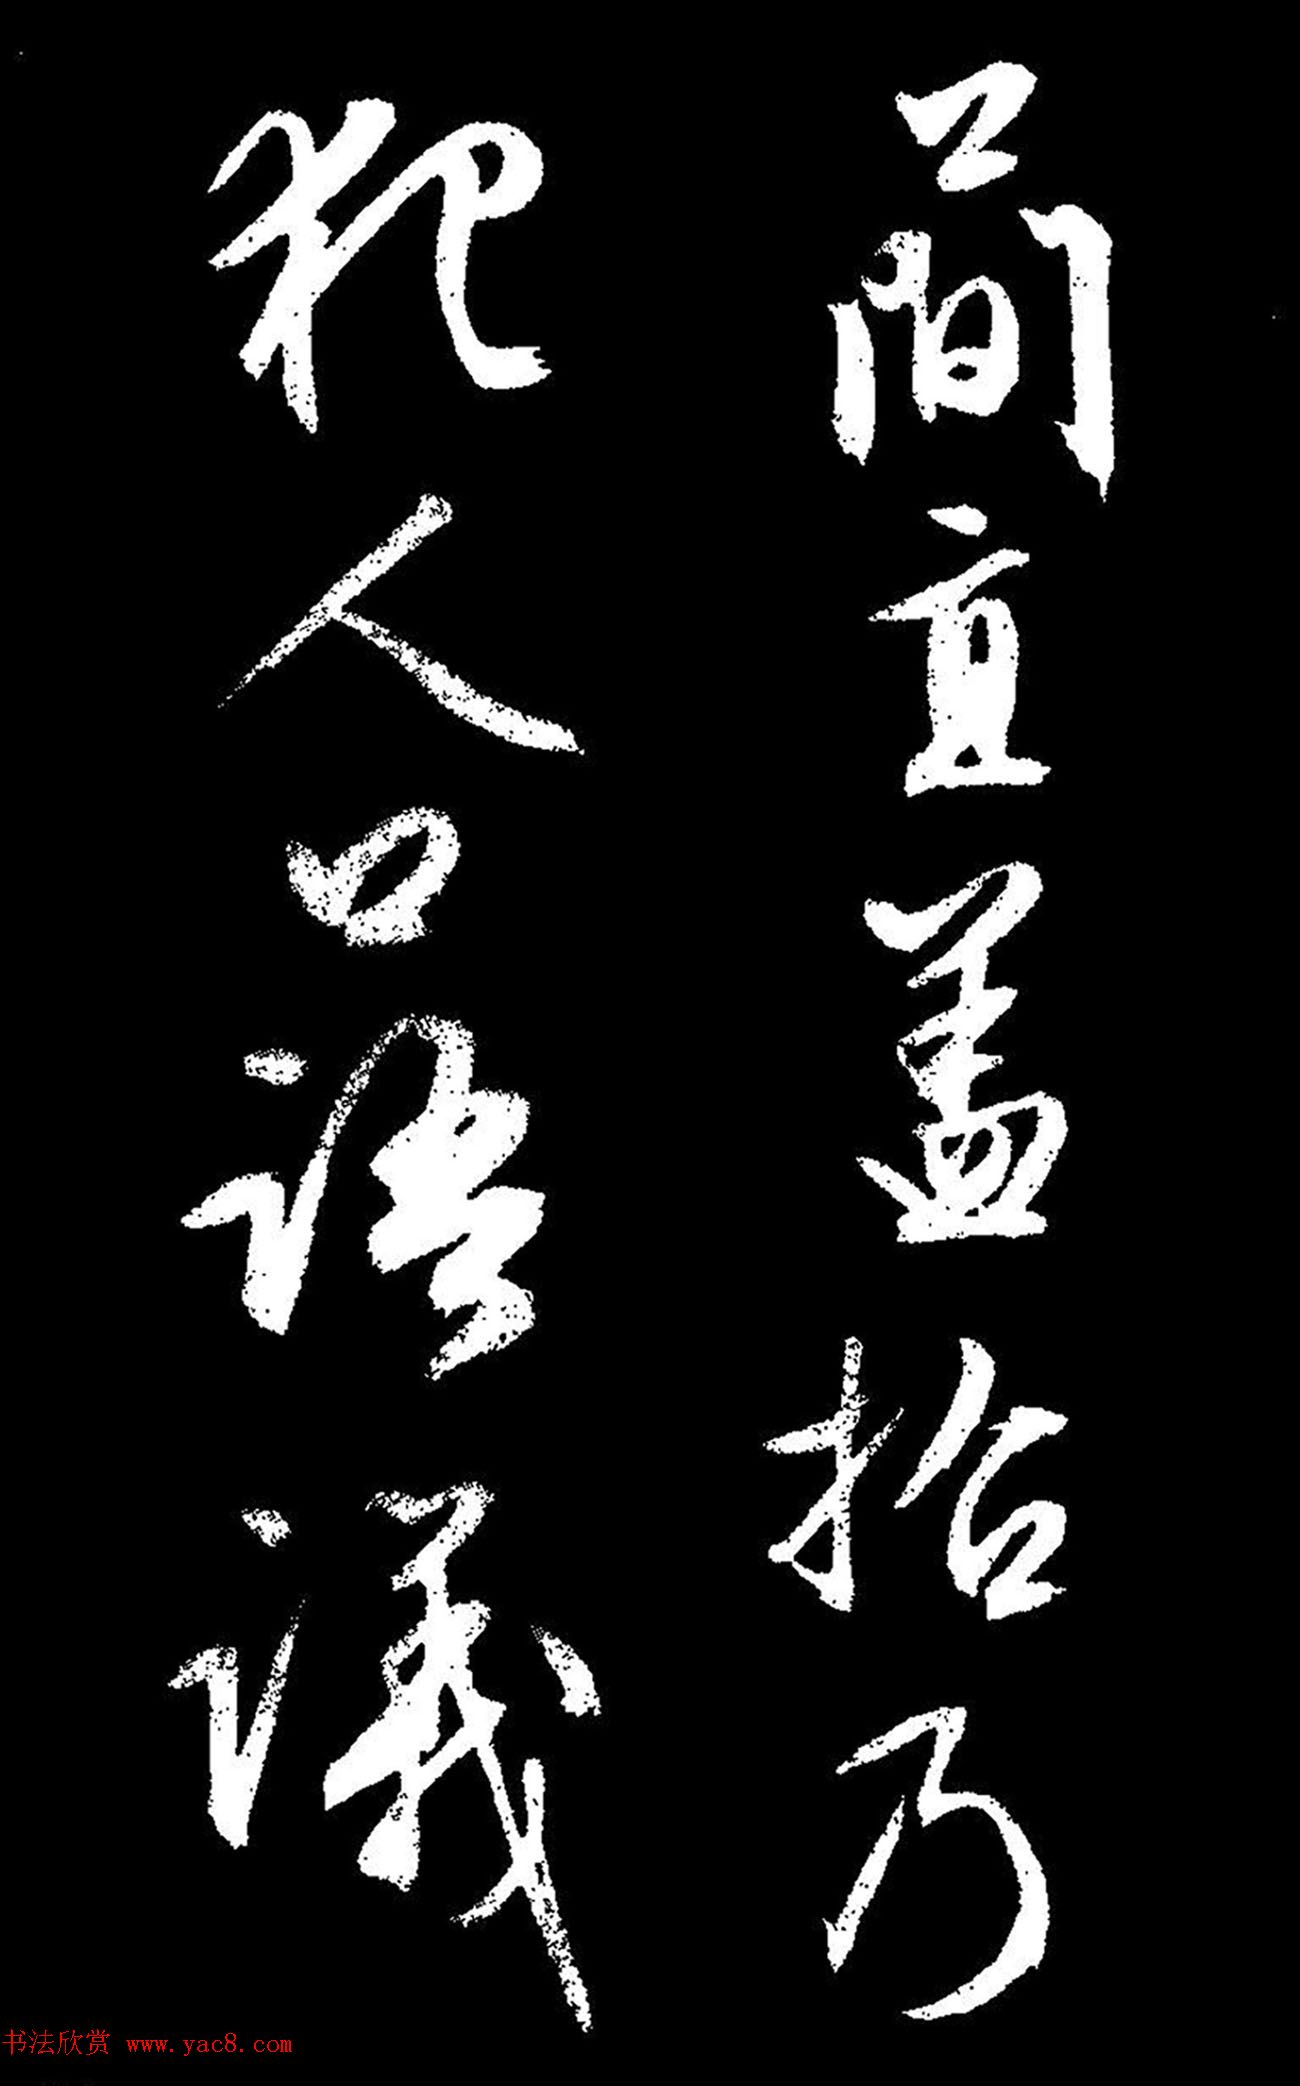 簡直蓋乃
犯人口語議
书法欣赏 www.yac8.com